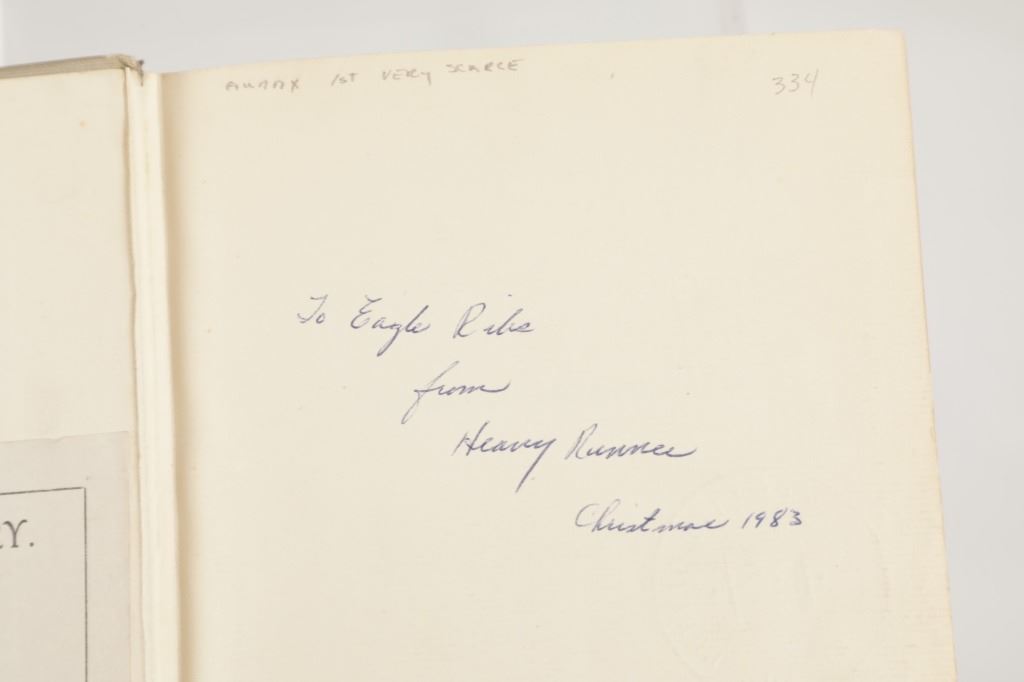 1ST VERY SCARCE
334
To Eagle Ribs
from
Heavy Runner
Christmas 1983
Y.